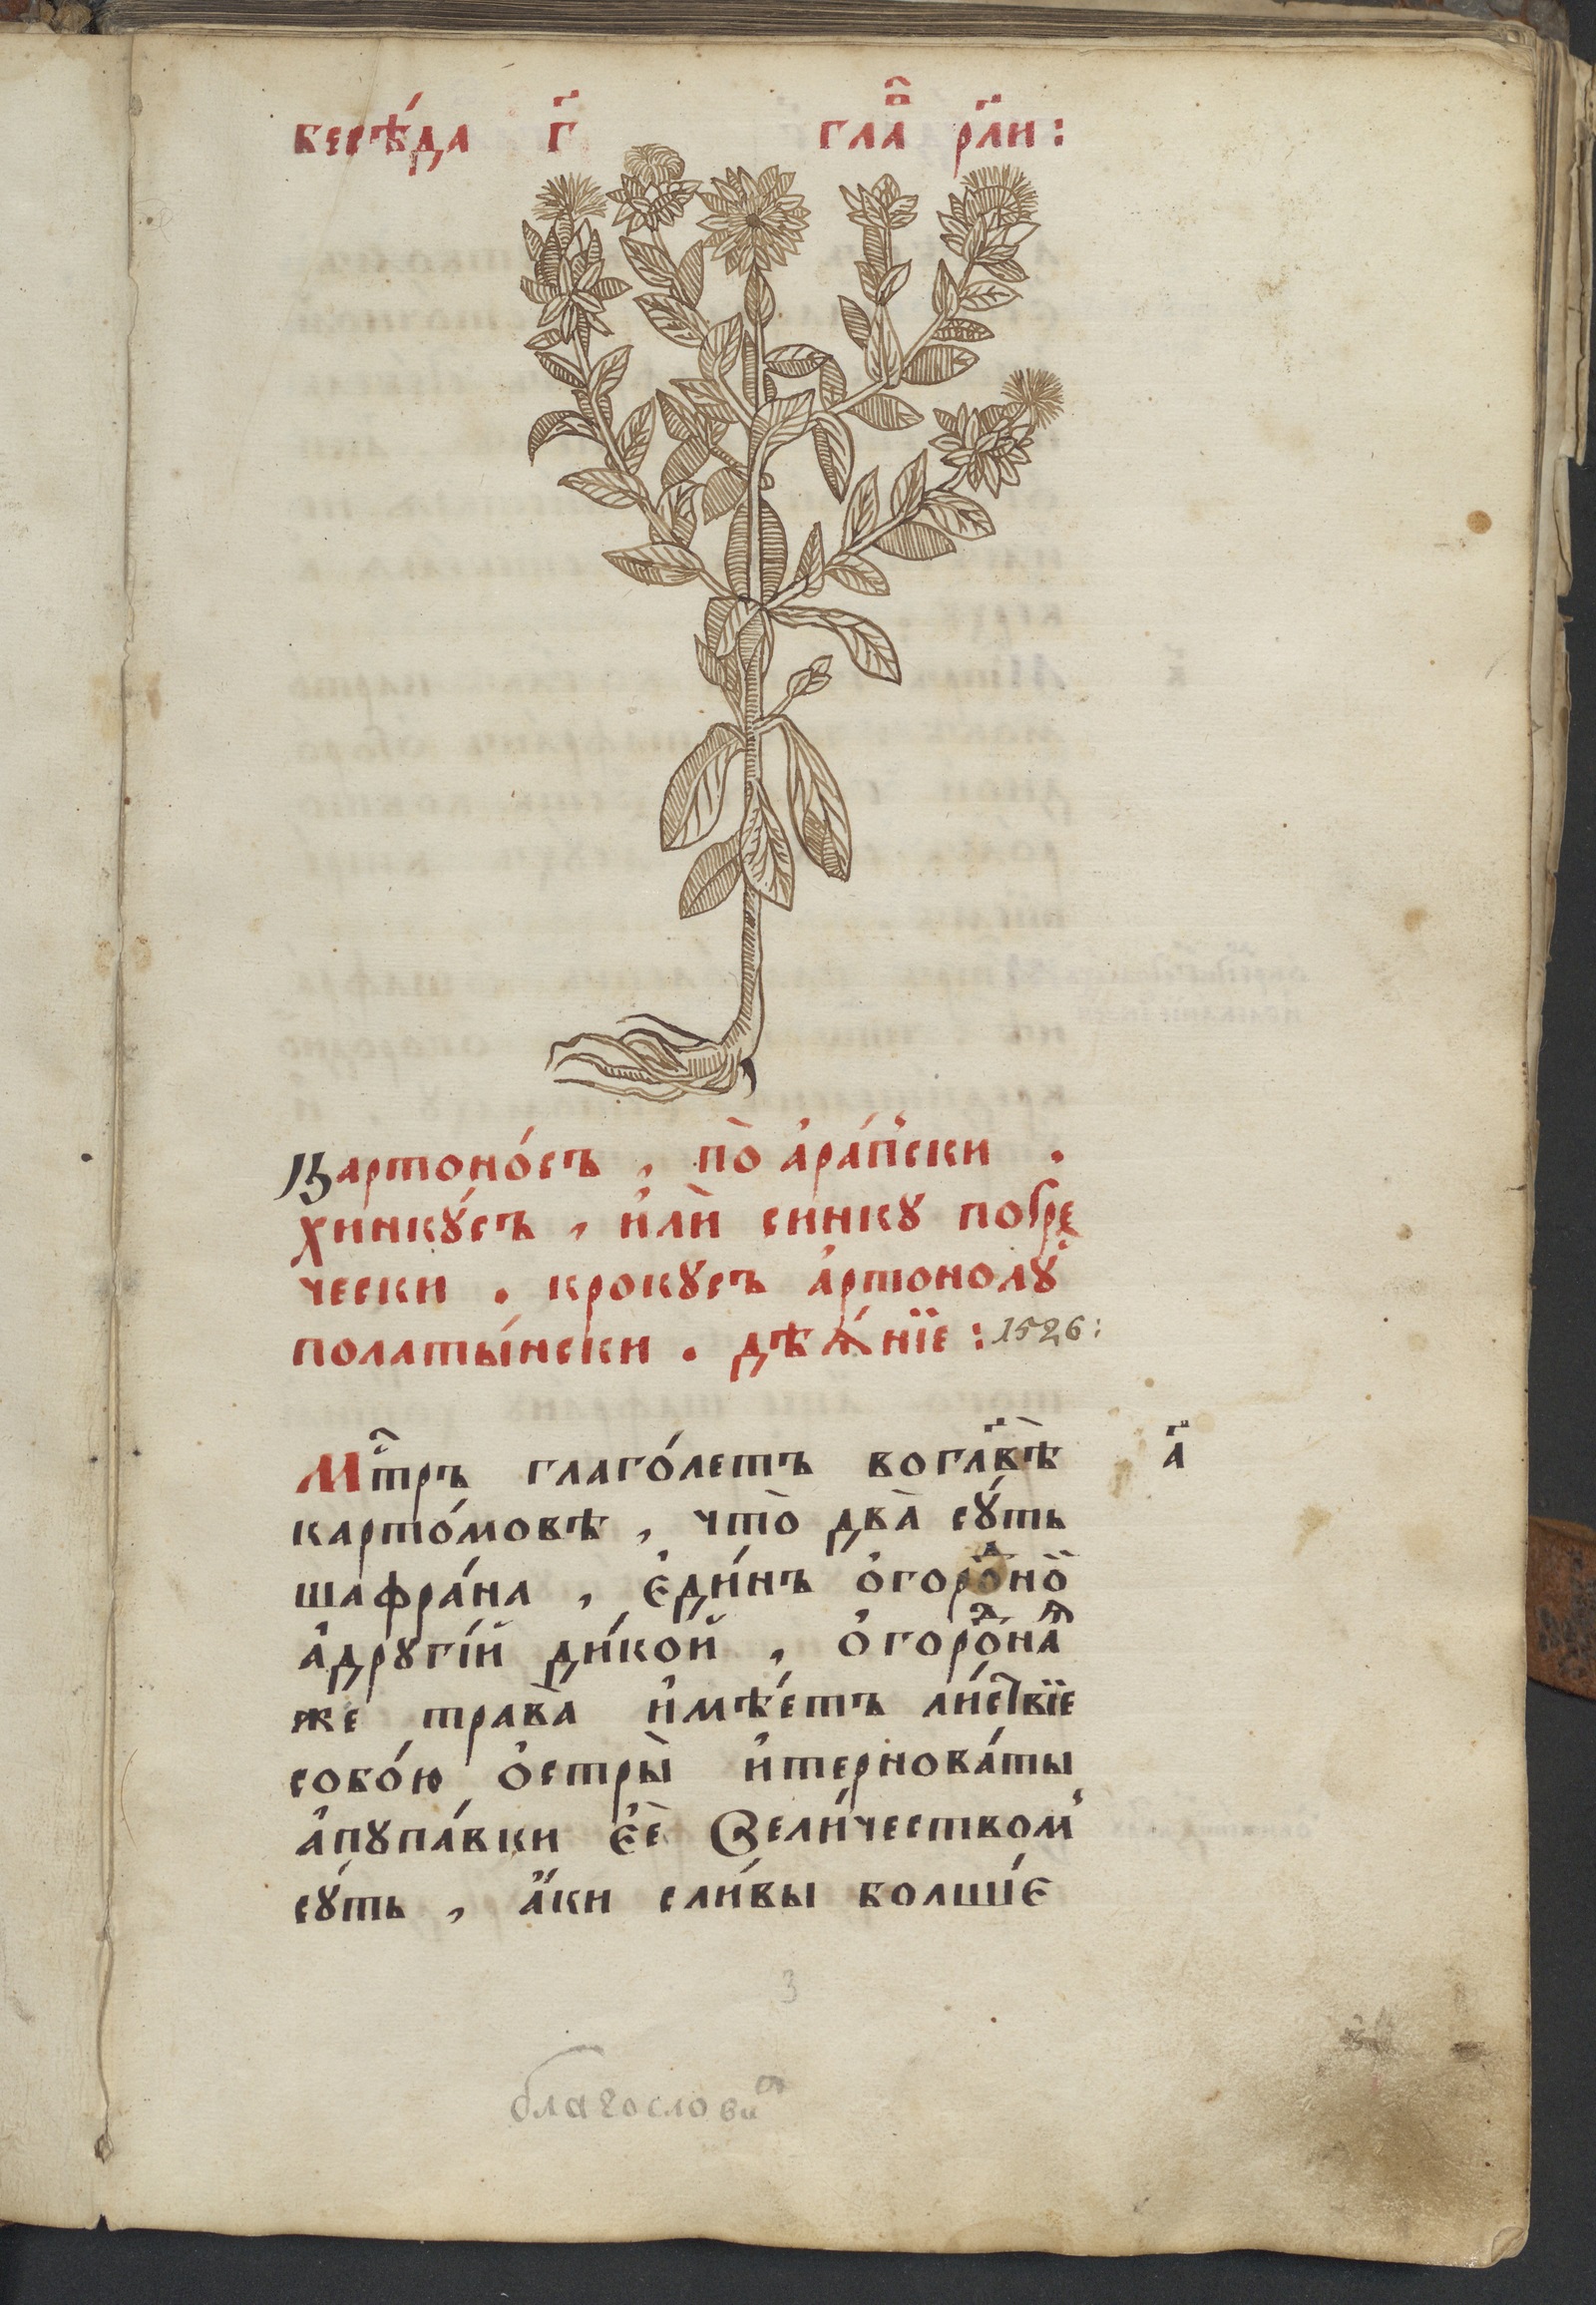 бесѣ́да г҃ глаⷡ҇ рл҃и:
Картоно́съ, по̀ а҆ра́пс́ки .
хинкꙋ́съ, и҆лѝ синкꙋ погре
чески . крокꙋсъ а҆ртонолꙋ
полаты́нски . дѣѧ́нїе : 1526:
Мⷭ҇тръ глаго́летъ воглавѣ̀ а҃
карто́мовѣ, что̀ два̀ сꙋ́ть
шафра́на, є҆ди́нъ ѻ҆горо́ⷣно
а҆дрꙋгі́й ди́кой, ѻ҆горо́ⷣнаѧ
же трава̀ и҆мѣ́етъ ли́ствїе
собо́ю ѻ҆стры̀ и҆тернова́ты
а҆пꙋпа́вки є҆ѐ вели́чеством
сꙋ́ть, а҆́ки сли́вы болшїе
3
благослови